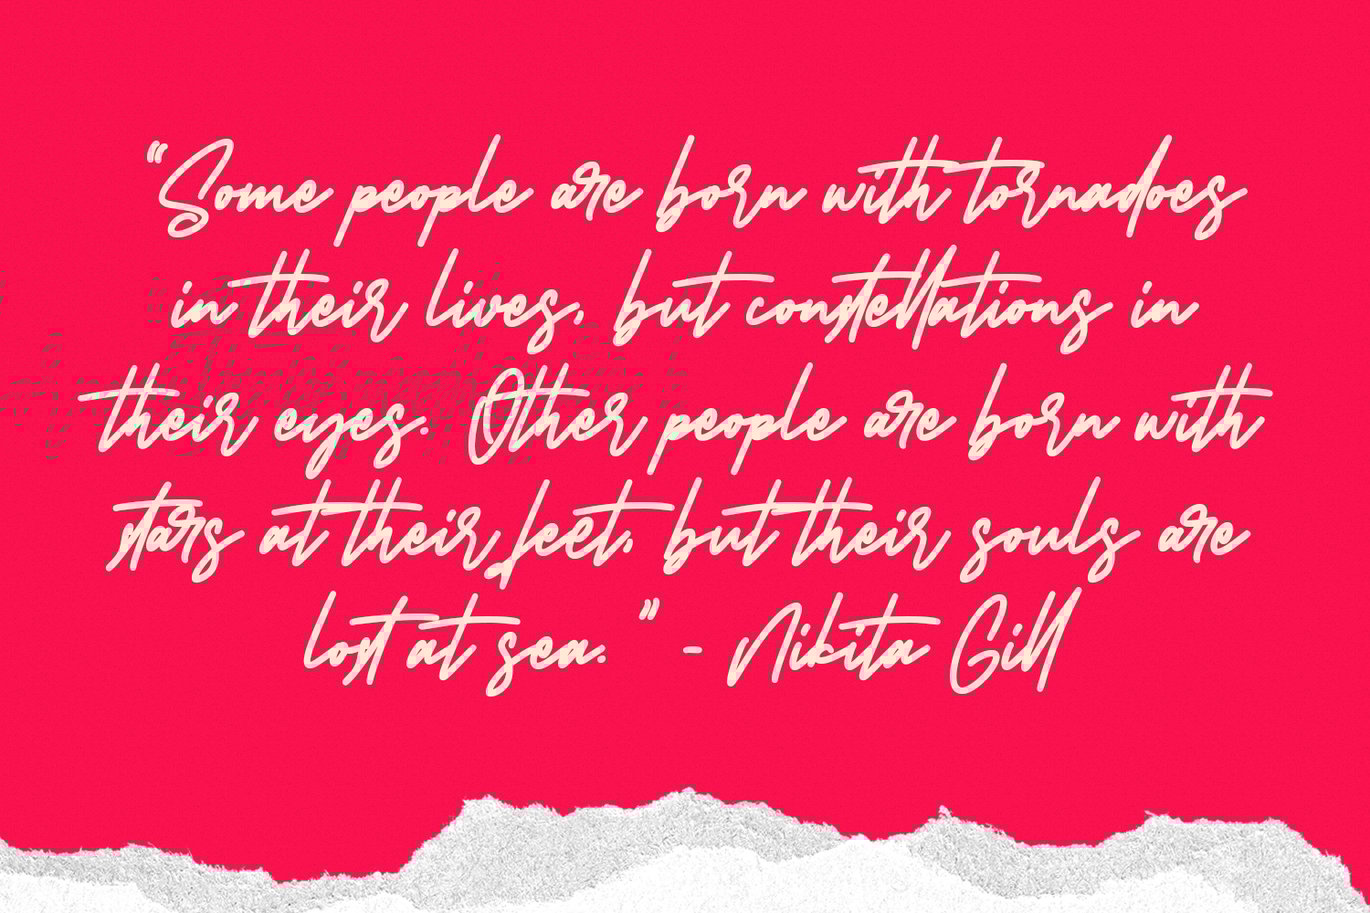 "Some people are born with tornadoes
in their lives, but constellations in
their eyes. Other people are born with
stars at their feet, but their souls are
lost at sea. " - Nikita Gill